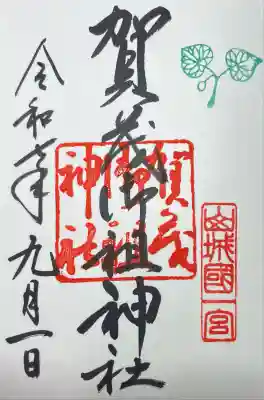 山城國一宮
賀茂御祖神社
賀茂
御祖
神社
令和年九月一日